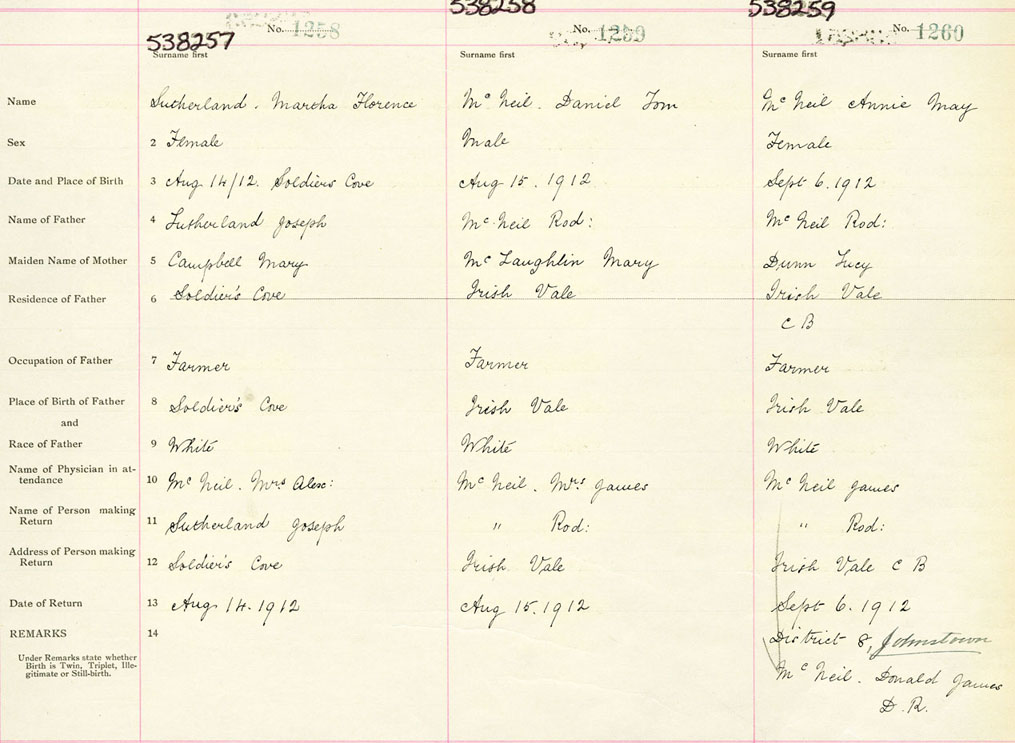 538257 538258 538259
No. 1258 No. 1259 No. 1260
Surname first Surname first Surname first
Name Sutherland. Martha Florence Mc Neil. Daniel Tom Mc Neil Annie May
Sex 2 Female Male Female
Date and Place of Birth 3 Aug 14/12. Soldier's Cove Aug 15. 1912 Sept 6. 1912
Name of Father 4 Sutherland Joseph Mc Neil Rod: Mc Neil Rod:
Maiden Name of Mother 5 Campbell Mary Mc Laughlin Mary Dunn Lucy
Residence of Father 6 Soldier's Cove Irish Vale Irish Vale
C B
Occupation of Father 7 Farmer Farmer Farmer
Place of Birth of Father 8 Soldier's Cove Irish Vale Irish Vale
and
Race of Father 9 White White White
Name of Physician in at-
tendance 10 Mc Neil. Mrs Alex: Mc Neil. Mrs James Mc Neil James
Name of Person making
Return 11 Sutherland Joseph " Rod: " Rod:
Address of Person making
Return 12 Soldier's Cove Irish Vale Irish Vale C B
Date of Return 13 Aug. 14. 1912 Aug 15. 1912 Sept 6. 1912
REMARKS 14 District 8, Johnstown
Under Remarks state whether
Birth is Twin, Triplet, Ille-
gitimate or Still-birth.
Mc Neil. Donald James
D. R.